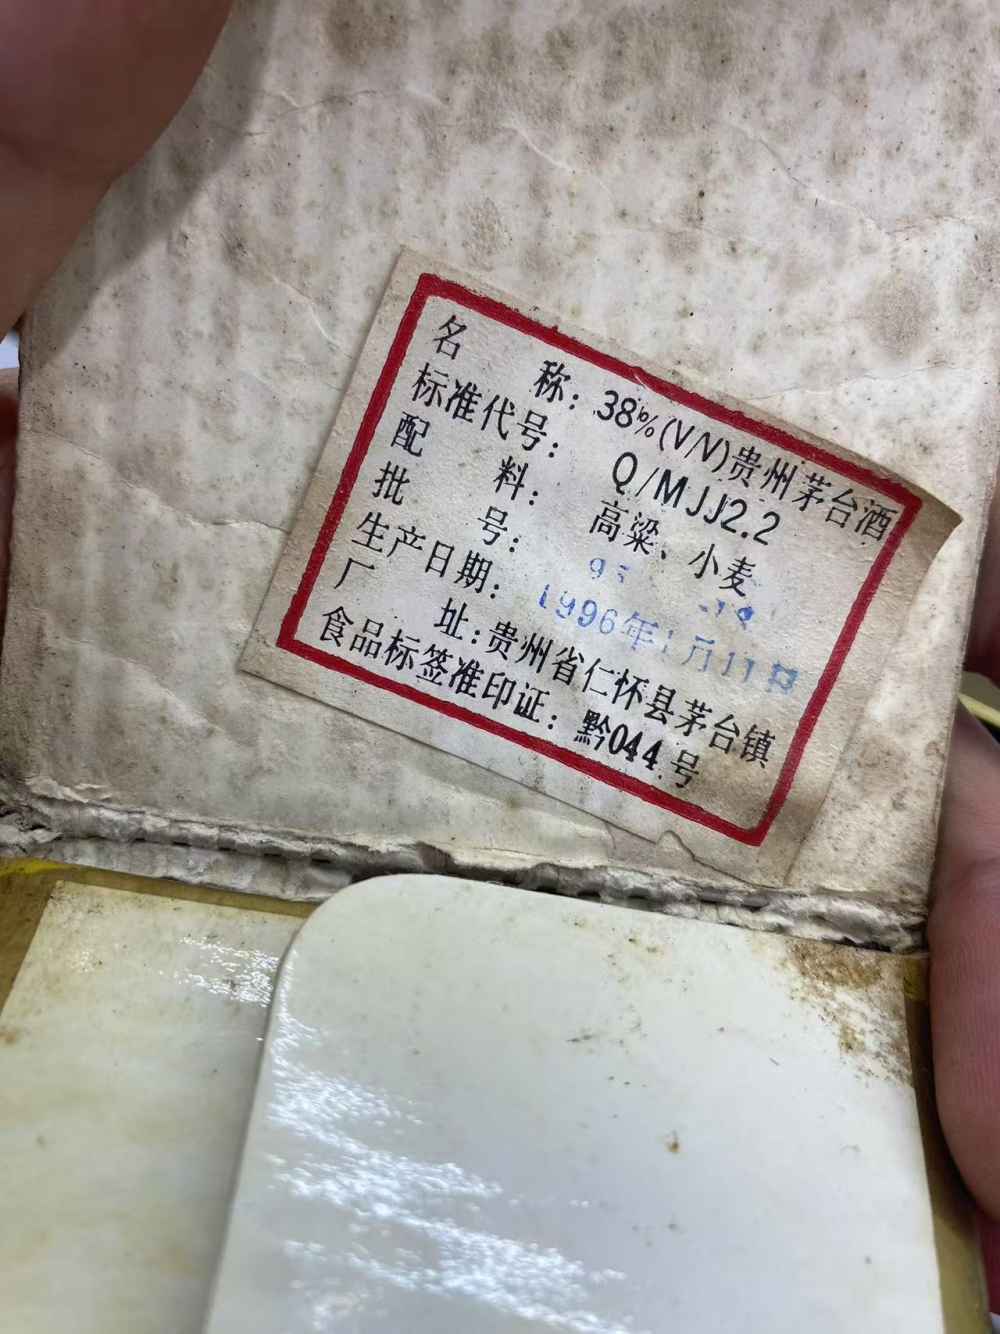 名 称：38%(V/V)贵州茅台酒
标准代号：Q/MJJ2.2
配 料：高粱、小麦
批 号：
生产日期：1996年1月11日
厂 址：贵州省仁怀县茅台镇
食品标签准印证：黔044号